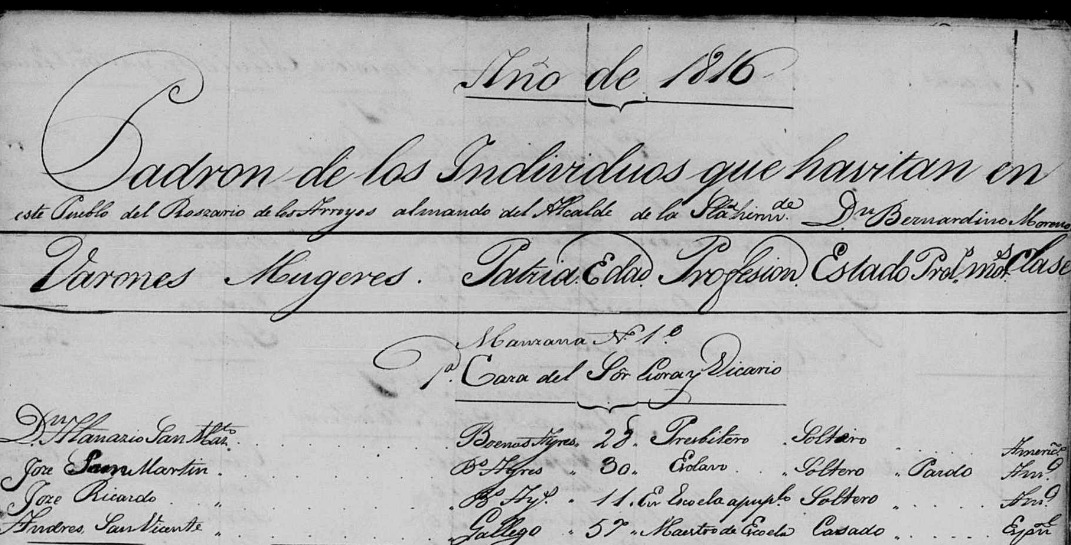 Año de 1816
Padron de los Individuos que havitan en
este Pueblo del Roszario de los Arroyos al mando del Alcalde de la Sta. Dn. Bernardino Moreno
Varones Mugeres. Patria Edad Profesion Estado Clase
Manzana No. 1o
Caza del Sôr Cura y Vicario
Dn. Atanazio San Buenos Ayres. 28. Presbitero Soltero
Joze San Martin Bs. Ayres 30. Esclavo Soltero Pardo
Joze Ricardo Bs. Ays 11. En Escoela Soltero
Andres San Vicente Gallego 57 Maestro de Escoela Casado